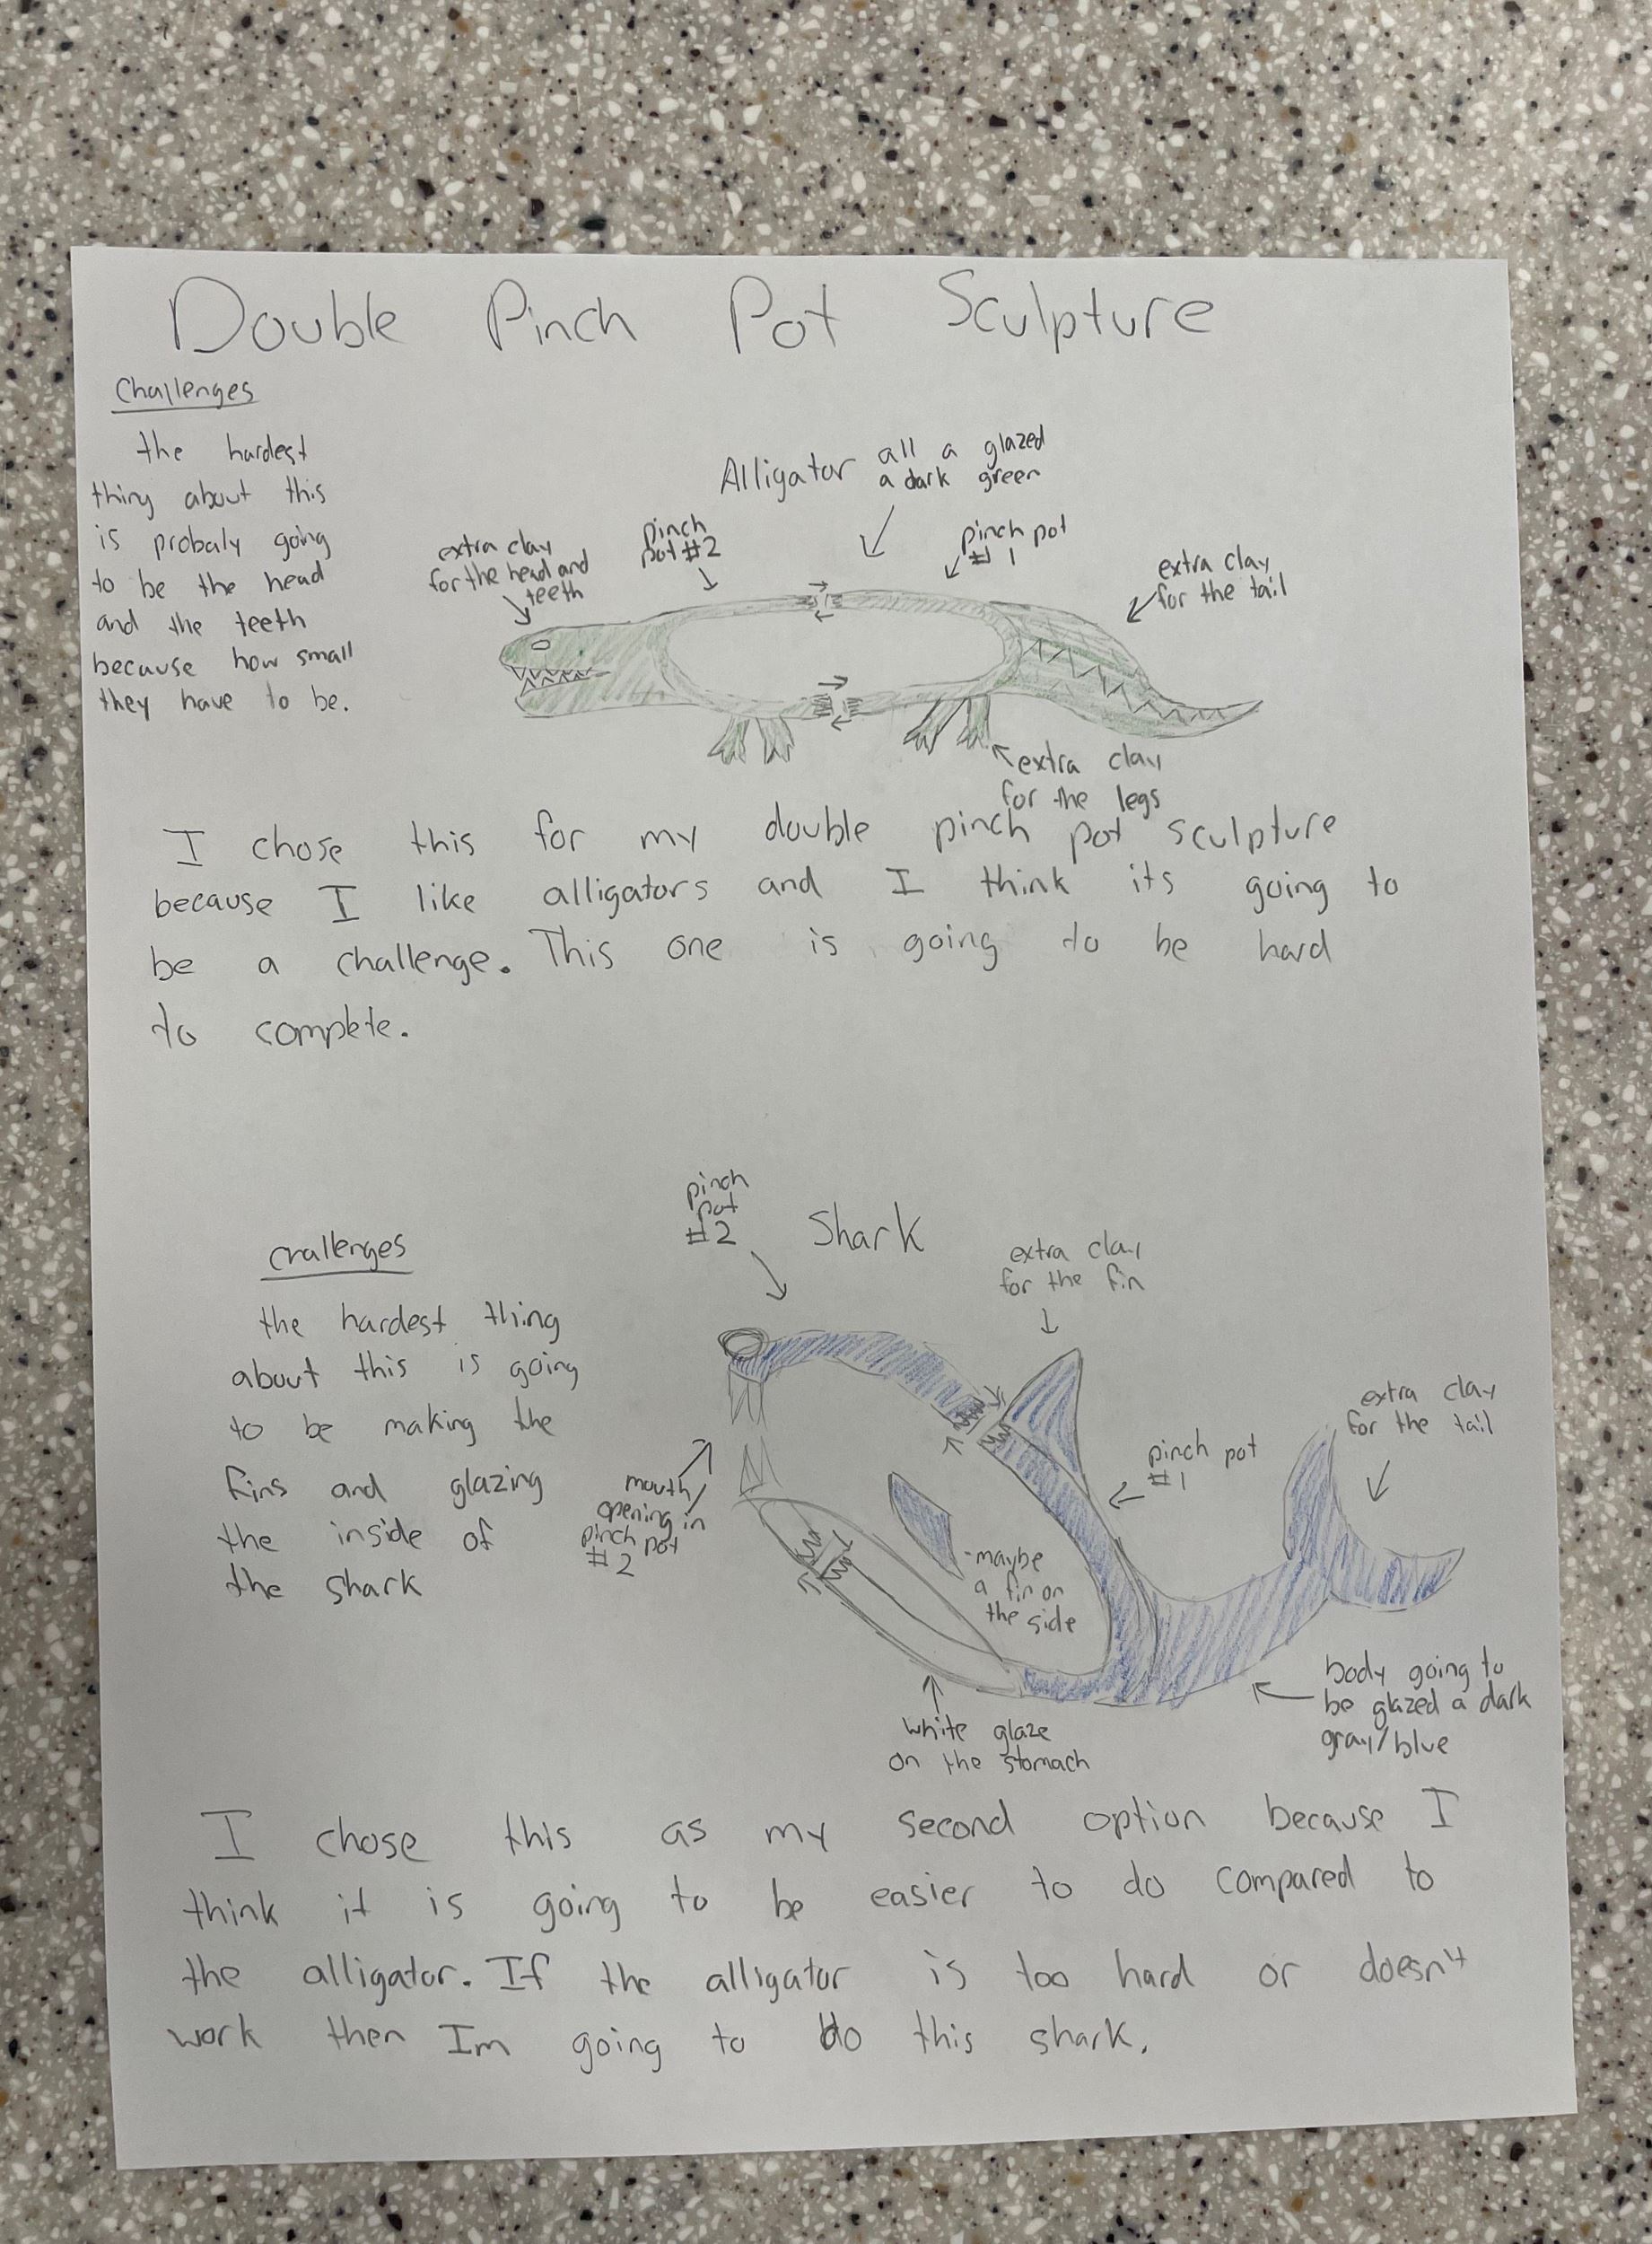 Double Pinch Pot Sculpture
Challenges
the hardest
thing about this
is probaly going
to be the head
and the teeth
because how small
they have to be.
Alligator
all a glazed
a dark green
extra clay
for the head and
teeth
pinch
pot #2
pinch pot
#1
extra clay
for the tail
extra clay
for the legs
I chose this for my double pinch pot sculpture
because I like alligators and I think its going to
be a challenge. This one is going to be hard
to complete.
pinch
pot
#2
Shark
extra clay
for the fin
Challenges
the hardest thing
about this is going
to be making the
fins and glazing
the inside of
the shark
mouth
opening in
pinch pot
#2
pinch pot
#1
extra clay
for the tail
-maybe
a fin on
the side
white glaze
on the stomach
body going to
be glazed a dark
gray/blue
I chose this as my second option because I
think it is going to be easier to do compared to
the alligator. If the alligator is too hard or doesn't
work then Im going to do this shark.